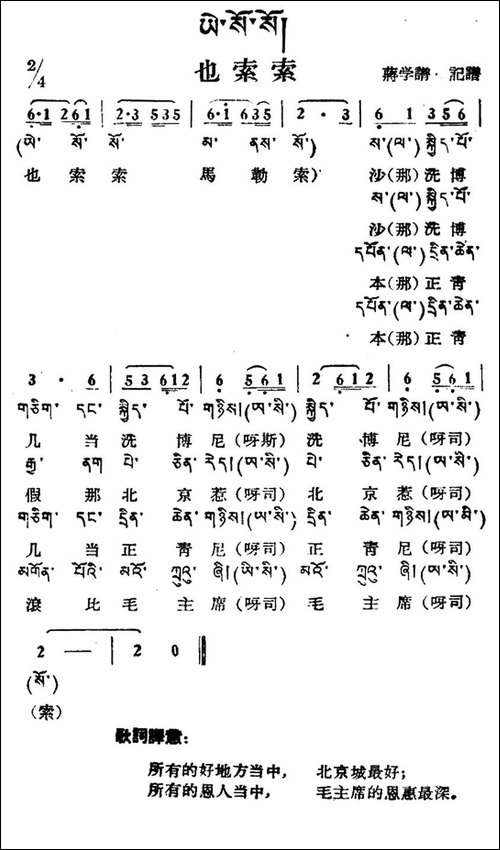 ཡེ་སོ་སོ།
也索索
2/4 蔣学謙·記譜
6·1 2 6 1 | 2·3 5 3 5 | 6·1 6 3 5 | 2 · 3 | 6 1 3 5 6 |
(ཡེ་ སོ་ སོ་ མ་ ནས་ སོ་) ས་(ལ་)སྐྱིད་པོ་
也 索 索 馬 勒 索) 沙(那)洗 博
ས་(ལ་)སྐྱིད་པོ་
沙(那)洗 博
དཔོན་(ལ་)དྲིན་ཆེན་
本(那)正 青
དཔོན་(ལ་)དྲིན་ཆེན་
本(那)正 青
3 · 6 | 5 3 6 1 2 | 6 5 6 1 | 2 6 1 2 | 6 5 6 1 |
གཅིག་ དང་ སྐྱིད་ པོ་ གཉིས།(ཨ་སི་) སྐྱིད་ པོ་ གཉིས།(ཨ་སི་)
几 当 洗 博 尼(呀斯) 洗 博 尼(呀司)
རྒྱ་ ནག པེ་ ཅིན་ རེད།(ཨ་སི་) པེ་ ཅིན་ རེད།(ཨ་སི་)
假 那 北 京 惹(呀司) 北 京 惹(呀司)
གཅིག་ དང་ དྲིན་ ཆེན་ གཉིས།(ཨ་སི་) དྲིན་ ཆེན་ གཉིས།(ཨ་སི་)
几 当 正 青 尼(呀司) 正 青 尼(呀司)
མགོན་ པོའི་ མའོ་ ཀྲུའུ་ ཞི།(ཡི་སི་) མའོ་ ཀྲུའུ་ ཞི།(ཨ་སི་)
滾 比 毛 主 席(呀司) 毛 主 席(呀司)
2 — | 2 0 ‖
(སོ་)
(索)
歌詞譯意:
所有的好地方当中, 北京城最好;
所有的恩人当中, 毛主席的恩惠最深。